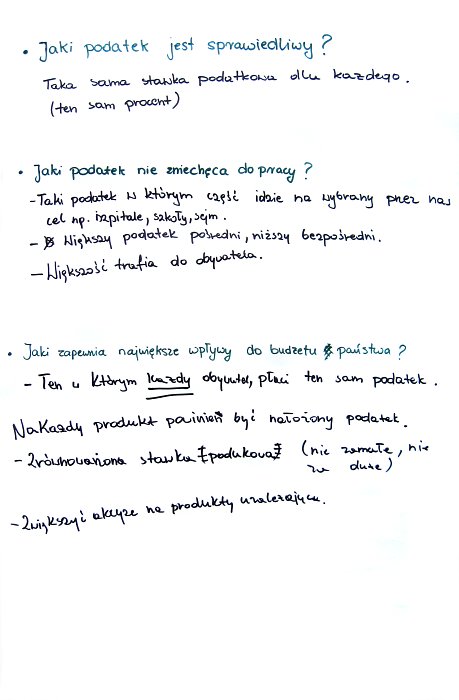 • Jaki podatek jest sprawiedliwy?
Taka sama stawka podatkowa dla każdego.
(ten sam procent)
• Jaki podatek nie zniechęca do pracy?
- Taki podatek w którym część idzie na wybrany przez nas
cel np. szpitale, szkoły, sejm.
- Większy podatek pośredni, niższy bezpośredni.
- Większość trafia do obywatela.
• Jaki zapewnia największe wpływy do budżetu państwa?
- Ten w którym każdy obywatel, płaci ten sam podatek.
Na każdy produkt powinien być nałożony podatek.
- Zrównoważona stawka [podatkowa] (nie za małe, nie
za duże)
- Zwiększyć akcyze na produkty uzależniające.